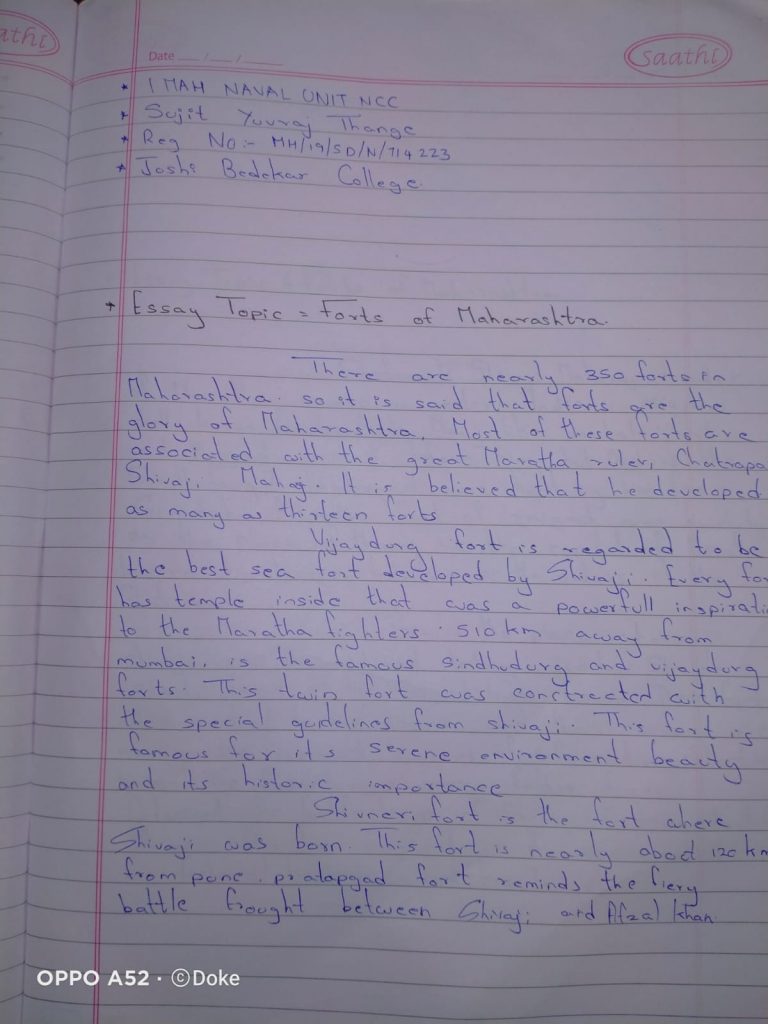 athi
Date __/__/____
Saathi
* 1 MAH NAVAL UNIT NCC
* Sujit Yuvraj Thange
* Reg No:- MH/19/SD/N/714223
* Joshi Bedekar College.
* Essay Topic = Forts of Maharashtra.
There are nearly 350 forts in
Maharashtra. so it is said that forts are the
glory of Maharashtra. Most of these forts are
associated with the great Maratha ruler, Chatrapa
Shivaji Mahaj. It is believed that he developed
as many as thirteen forts
Vijaydurg fort is regarded to be
the best sea fort developed by Shivaji. Every for
has temple inside that was a powerfull inspirati
to the Maratha fighters. 510 km away from
mumbai, is the famous sindhudurg and vijaydurg
forts. This twin fort was constracted with
the special guidelines from shivaji. This fort is
famous for its serene environment beauty
and its historic importance
Shivneri fort is the fort where
Shivaji was born. This fort is nearly about 120 km
from pune. pratapgad fort reminds the fiery
battle frought between Shivaji and Afzal Khan
OPPO A52 · ©Doke